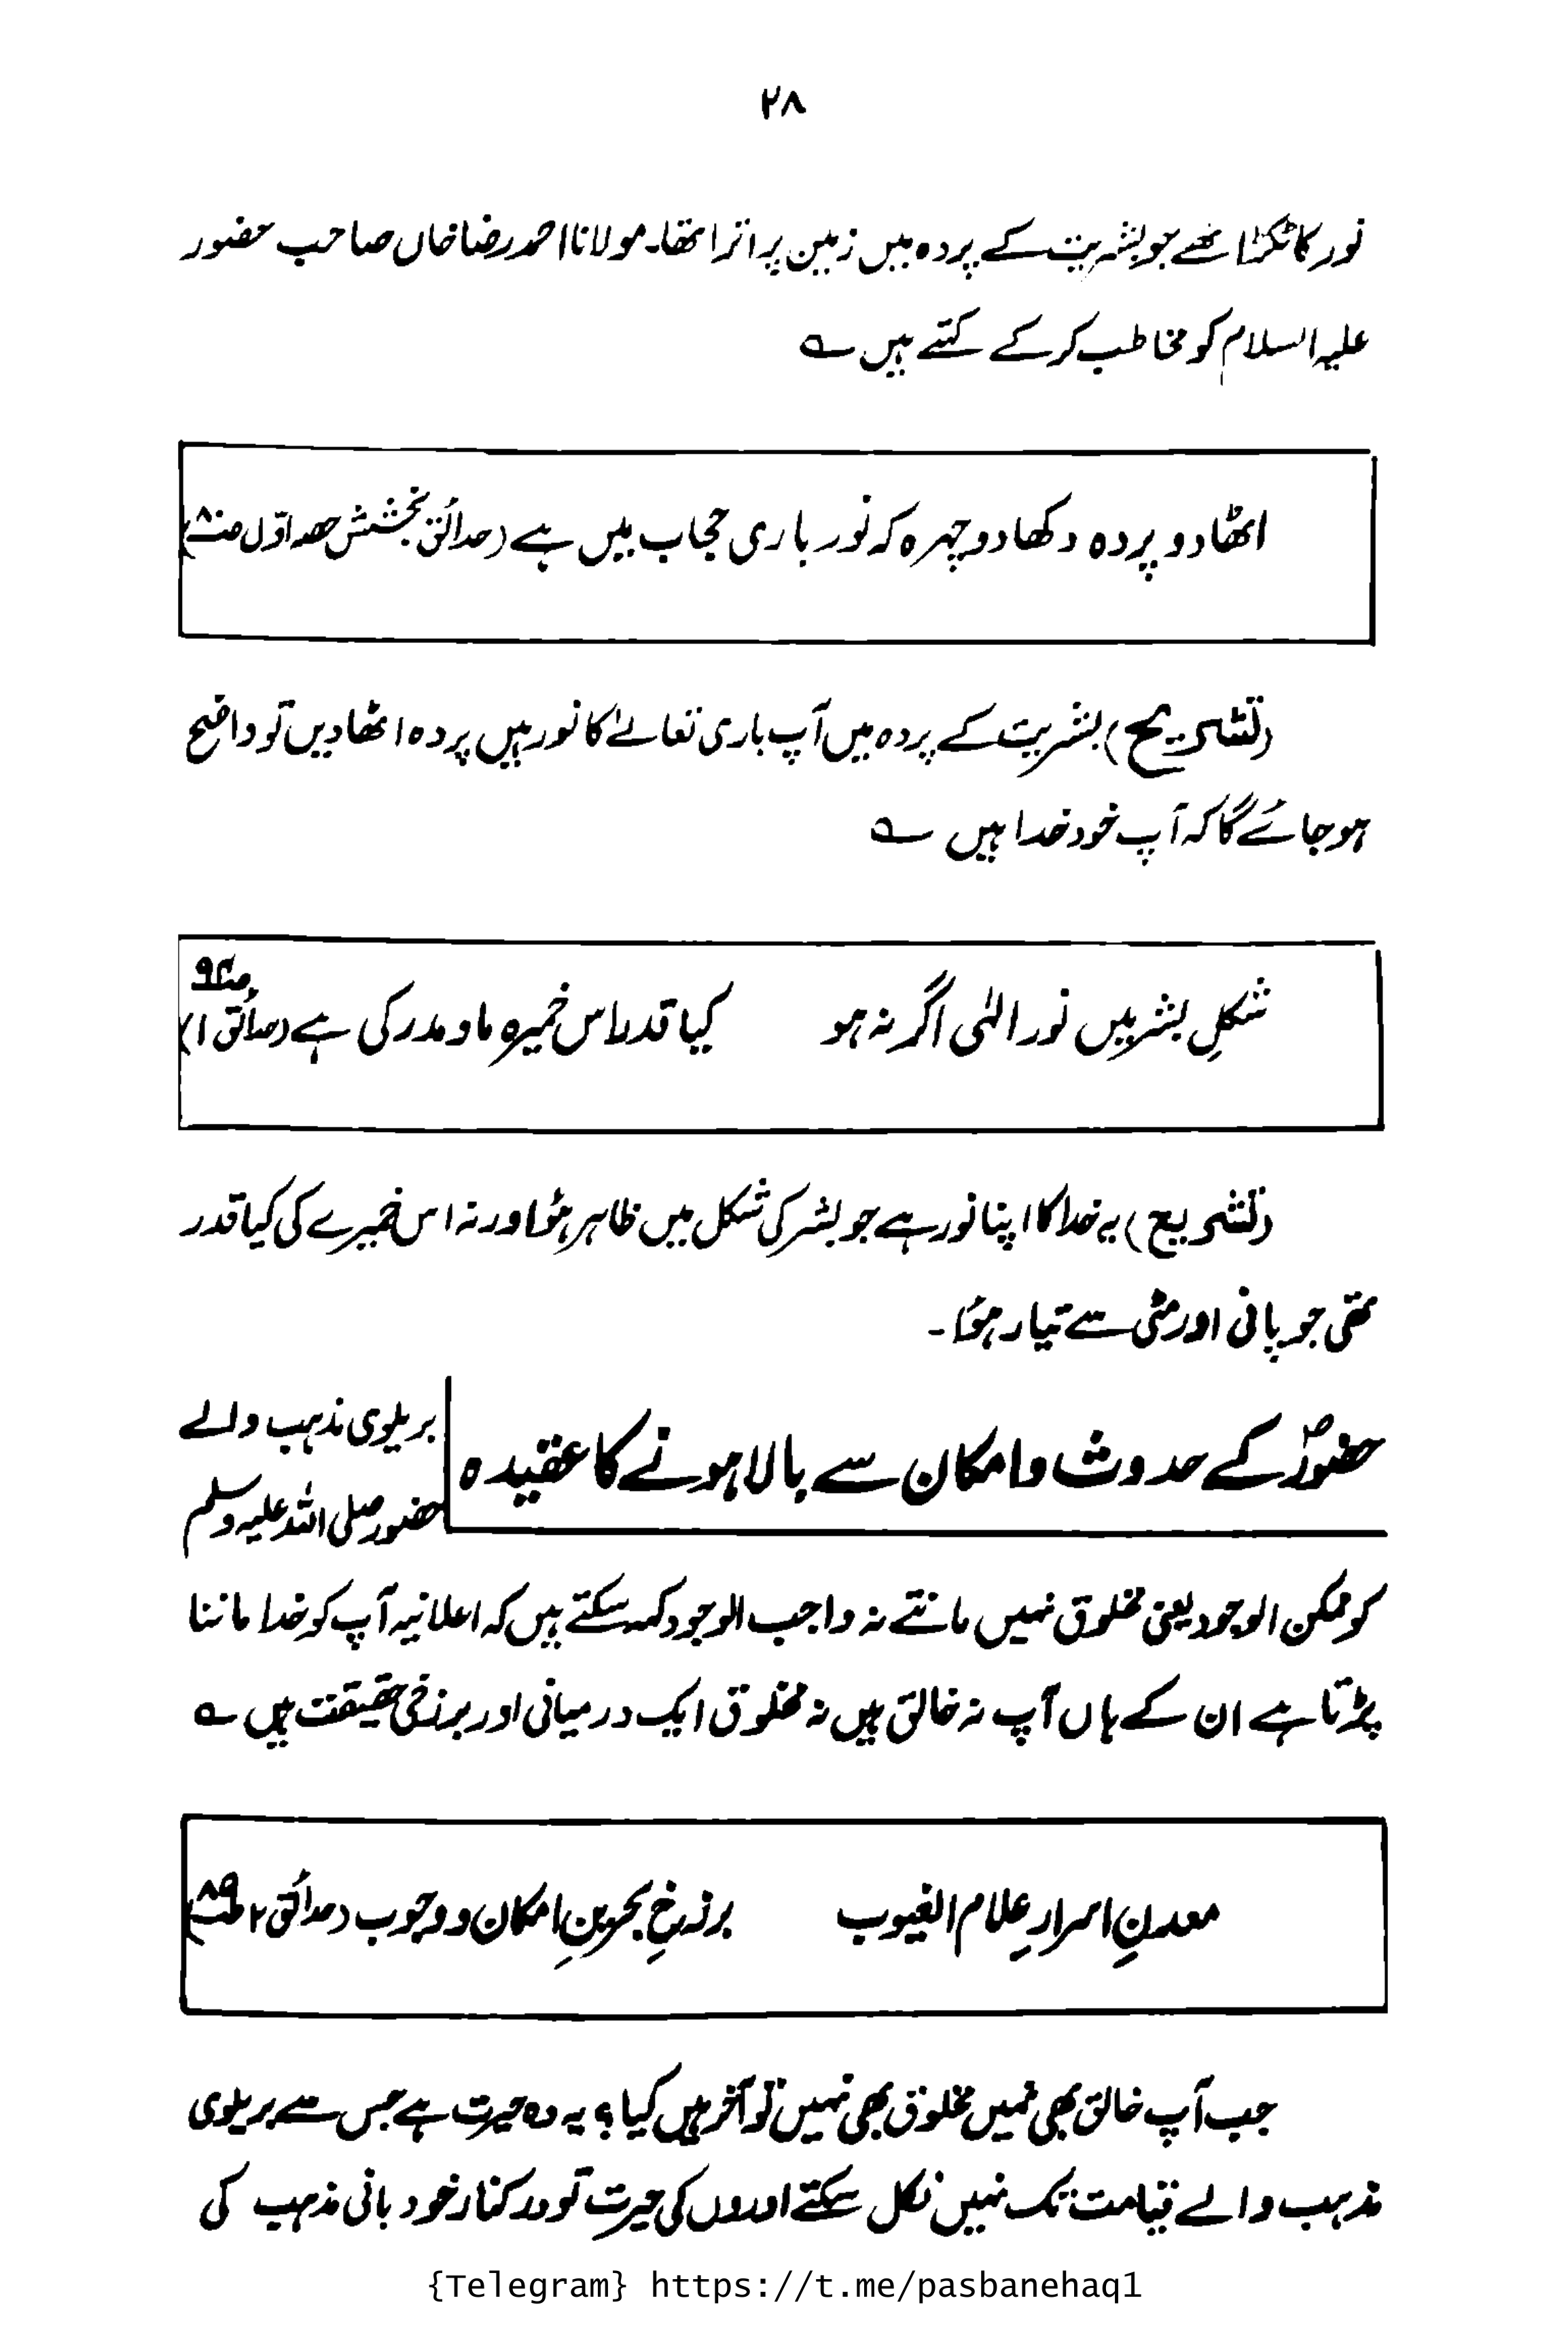 ۲۸
نور کا ٹکڑا تھے جو بشریت کے پردہ میں زمین پر اترا تھا۔ مولانا احمد رضا خاں صاحب حضور
علیہ السلام کو مخاطب کر کے کہتے ہیں ؎
اٹھا دو پردہ دکھا دو چہرہ کہ نور باری حجاب میں ہے (حدائق بخشش حصہ اوّل
(تشریح) بشریت کے پردہ میں آپ باری تعالےٰ کا نور ہیں پردہ اٹھا دیں تو واضح
ہو جائے گا کہ آپ خود خدا ہیں ؎
شکلِ بشر میں نور الٰہی اگر نہ ہو کیا قدر اس خمیرہ ما و مدر کی ہے (حدائق ۱)
(تشریح) یہ خدا کا اپنا نور ہے جو بشر کی شکل میں ظاہر ہؤا ورنہ اس خمیرے کی کیا قدر
تھی جو پانی اور مٹی سے تیار ہؤا۔
حضورؐ کے حدوث و امکان سے بالا ہونے کا عقیدہ
بریلوی مذہب والے
حضور صلی اللہ علیہ وسلم
کو ممکن الوجود یعنی مخلوق نہیں مانتے نہ واجب الوجود کہہ سکتے ہیں کہ اعلانیہ آپ کو خدا ماننا
پڑتا ہے ان کے ہاں آپ نہ خالق ہیں نہ مخلوق ایک درمیانی اور برزخی حقیقت ہیں ؎
معدنِ اسرارِ علام الغیوب برزخِ بحرینِ امکان و وجوب (حدائق ۲ ص۸۹)
جب آپ خالق بھی نہیں مخلوق بھی نہیں تو آخر ہیں کیا؟ یہ وہ حیرت ہے جس سے بریلوی
مذہب والے قیامت تک نہیں نکل سکتے اوروں کی حیرت تو درکنار خود بانی مذہب کی
{Telegram} https://t.me/pasbanehaq1